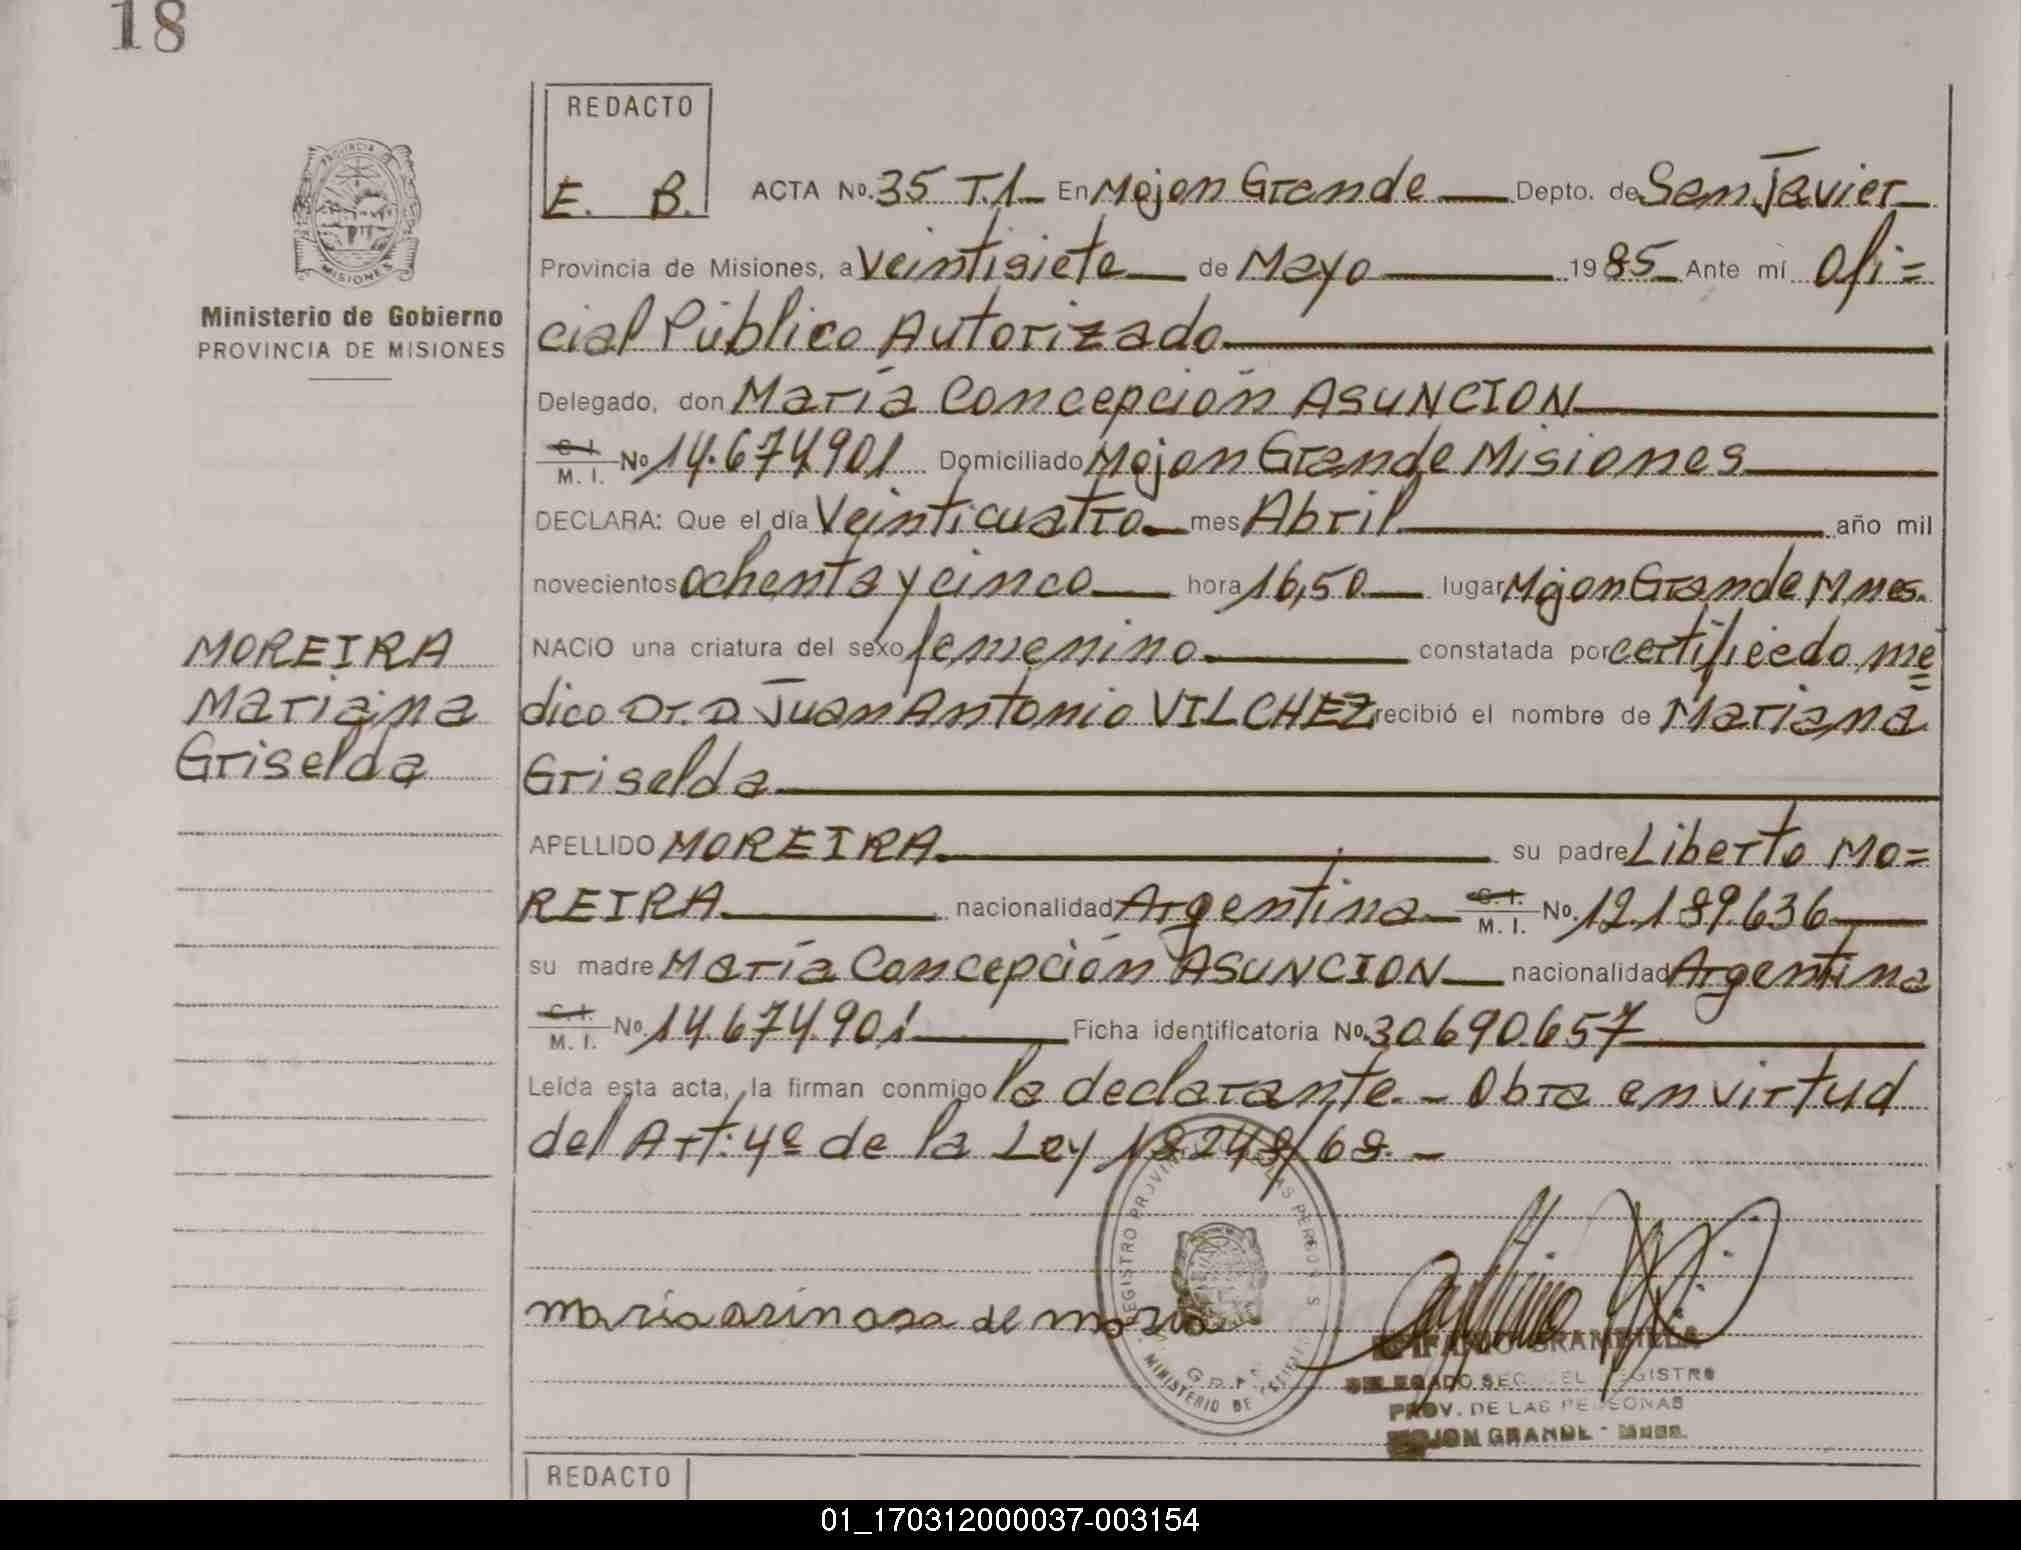 18
REDACTO
E. B.
ACTA No. 35 T.1 En Mojon Grande Depto. de San Javier
Provincia de Misiones, a Veintisiete de Mayo 1985 Ante mí Ofi=
cial Público Autorizado
Delegado, don María Concepción ASUNCION
C.I. / M. I. No 14.674.901 Domiciliado Mojon Grande Misiones
DECLARA: Que el día Veinticuatro mes Abril año mil
novecientos ochenta y cinco hora 16,50 lugar Mojon Grande Mnes.
NACIO una criatura del sexo femenino constatada por certificado me=
dico Dr. D Juan Antonio VILCHEZ recibió el nombre de Mariana
Griselda
APELLIDO MOREIRA su padre Liberto MO=
REIRA nacionalidad Argentina C.I. / M. I. No. 12.189.636
su madre María Concepción ASUNCION nacionalidad Argentina
C.I. / M. I. No. 14.674.901 Ficha identificatoria No. 30.690.657
Leída esta acta, la firman conmigo la declarante. - Obra en virtud
del Art: 4º de la Ley 18248/68. -
PROVINCIA DE
MISIONES
Ministerio de Gobierno
PROVINCIA DE MISIONES
MOREIRA
Mariana
Griselda
maria
de
REGISTRO PROVINCIAL DE LAS PERSONAS
MINISTERIO DE
DELEGADO SEC. DEL REGISTRO
PROV. DE LAS PERSONAS
MOJON GRANDE - Mnes.
REDACTO
01_170312000037-003154